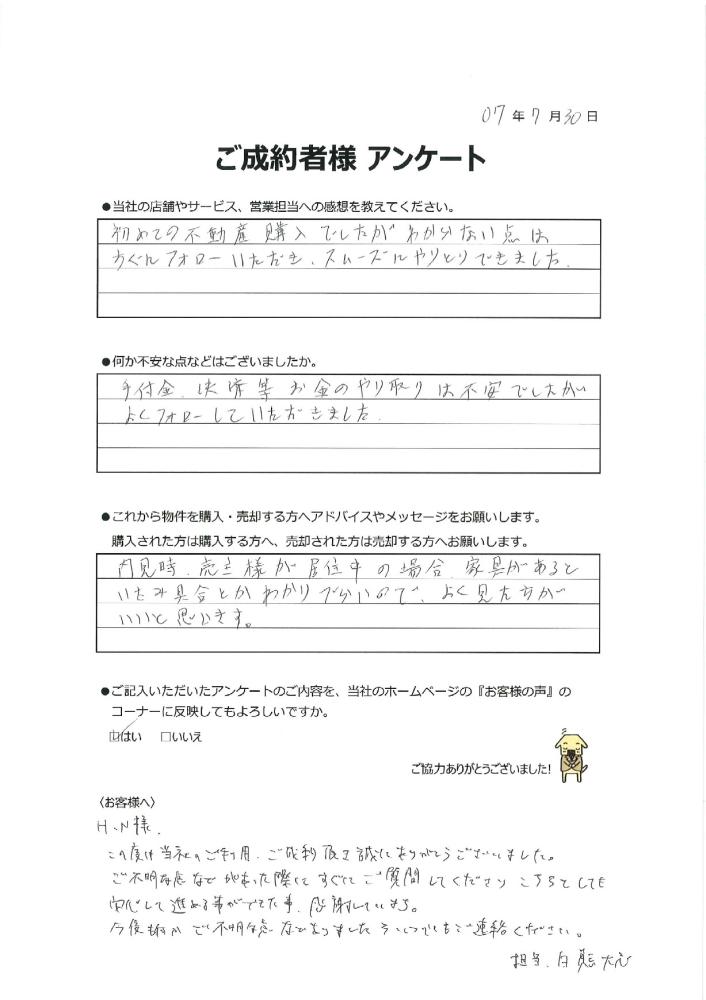 07年7月30日
ご成約者様 アンケート
●当社の店舗やサービス、営業担当への感想を教えてください。
初めての不動産購入でしたがわからない点は
フォローいただき、スムーズにやりとりできました。
●何か不安な点などはございましたか。
手付金、決済等お金のやり取りは不安でしたが
よくフォローしていただきました。
●これから物件を購入・売却する方へアドバイスやメッセージをお願いします。
購入された方は購入する方へ、売却された方は売却する方へお願いします。
内見時、売主様が居住中の場合、家具があると
いたみ具合とかわかりづらいので、よく見た方が
いいと思います。
●ご記入いただいたアンケートのご内容を、当社のホームページの『お客様の声』の
コーナーに反映してもよろしいですか。
☑はい □いいえ
ご協力ありがとうございました!
〈お客様へ〉
H.N様、
この度は当社のご利用、ご成約頂き誠にありがとうございました。
ご不明な点など あった際に すぐに ご質問してくださり こちらとしても
安心して進める事ができた事、感謝しています。
今後も ご不明な点などありましたら いつでもご連絡ください。
担当、白